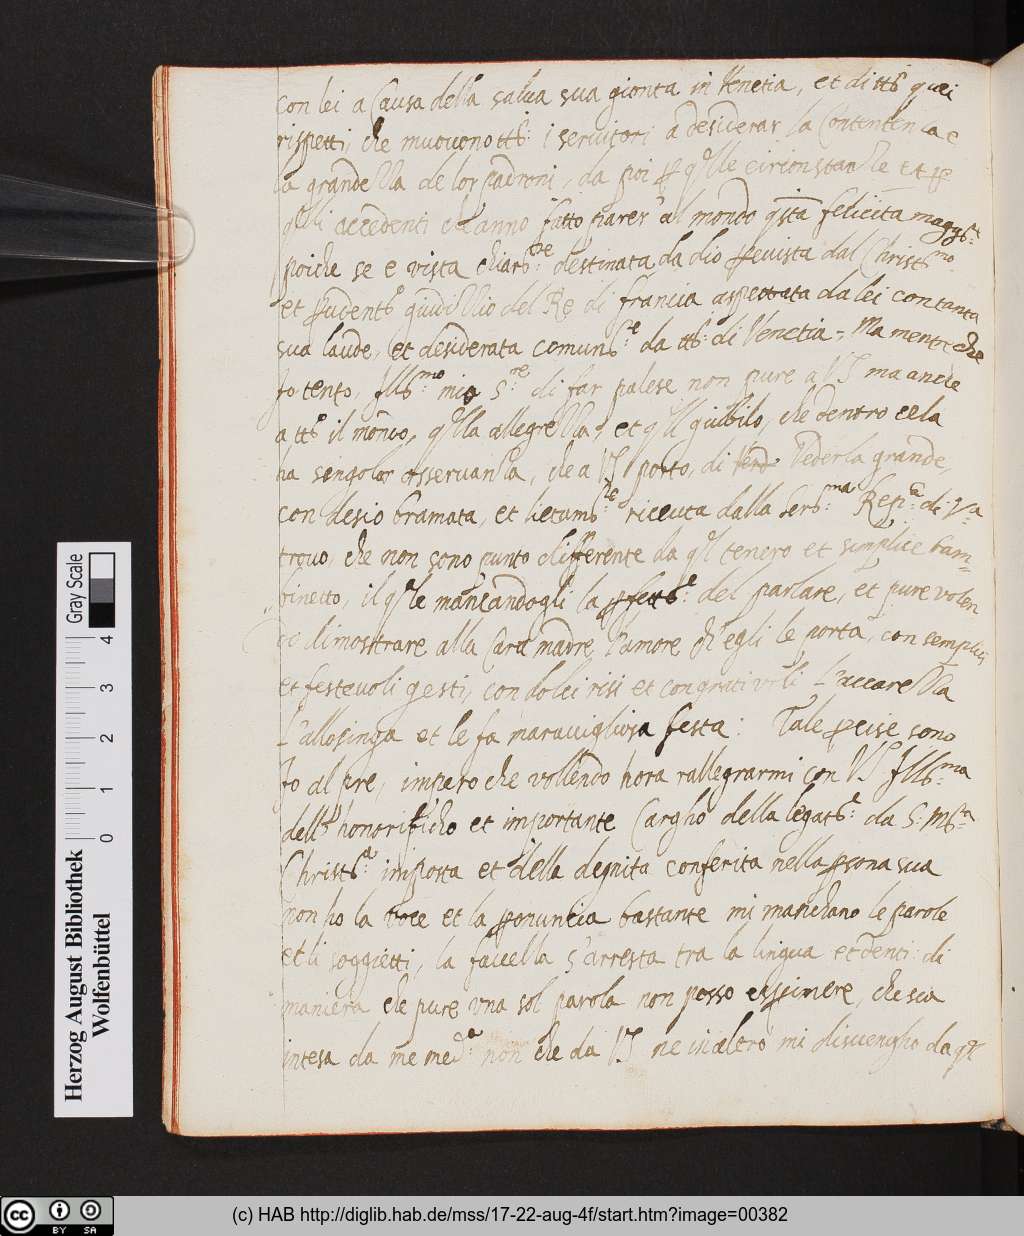 con lei a Causa della salva sua gionta in Venetia, et di tti quei
rispetti, che muovono tti: i servitori a desiderar la Contentezza e
la grandezza de lor padroni, da poi p qlle circonstanze et p
qlli accedenti che anno fatto parer al mondo qsta felicità maggre:
poiche se e vista chiarte: destinata da dio pvista dal Christmo:
et prudente giuditio del Re di francia aspettata da lei con tanta
sua laude, et desiderata comunte: da tti: di Venetia. Ma mentre che
Jo tento, Jllmo: mio Sre: di far palese non pure a VS ma anche
a tto il mondo, qlla allegrezza, et ql giubilo, che dentro ee la
ha singolar osservanza, che a VS porto, di vederla grande,
con desio bramata, et lietamte: riceuta dalla Serma: Repca: di Va:
trovo, che non sono punto differente da ql tenero et simplice bam=
binetto, il qle mancandogli la pfette: del parlare, et pure volen
do dimostrare alla Cara madre l'amore ch'egli le porta, con semplici
et festevoli gesti, con dolci risi et con grati vezzi L'accarezza
L'allosinga et le fa maravigliosa festa: Tale pcise sono
Jo al pre, impero che vollendo hora rallegrarmi con VS Jllma:
dell' honorificho et importante Cargho della legate: da S: Mta:
Christa: imposta et della degnita conferita nella psona sua
non ho la voce et la pnuncia bastante mi manchano le parole
et li soggietti, la favella s'arresta tra la lingua et denti: di
maniera che pure una sol parola non posso esprimere, che sia
intesa da me meda: non che da VS ne in altro mi disvengho da ql
Herzog August Bibliothek
Wolfenbüttel
Gray Scale
0 1 2 3 4
(c) HAB http://diglib.hab.de/mss/17-22-aug-4f/start.htm?image=00382
cc BY SA